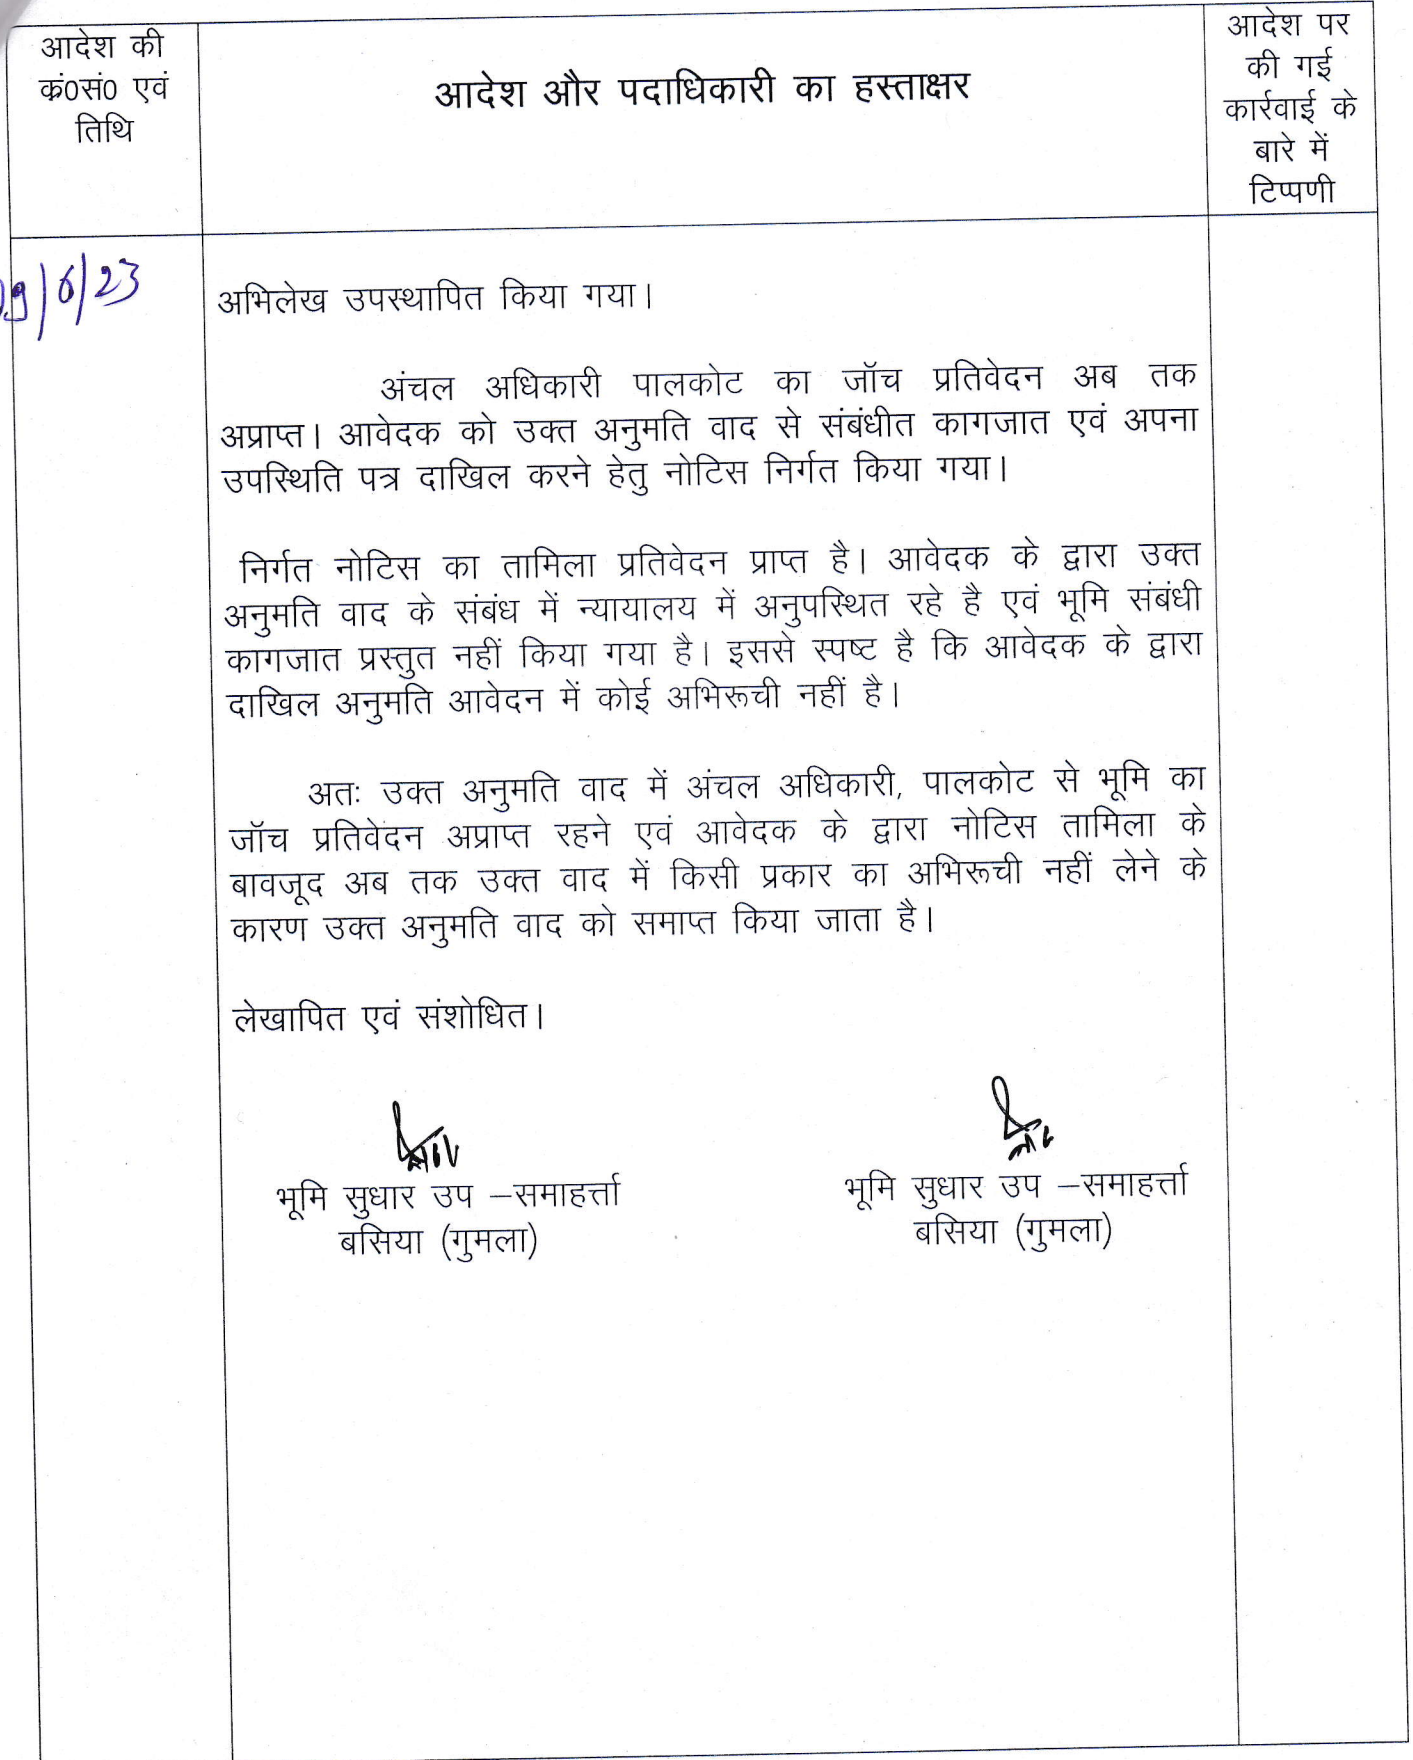 आदेश की
कं0सं0 एवं
तिथि
आदेश और पदाधिकारी का हस्ताक्षर
आदेश पर
की गई
कार्रवाई के
बारे में
टिप्पणी
09/6/23
अभिलेख उपस्थापित किया गया।
अंचल अधिकारी पालकोट का जॉच प्रतिवेदन अब तक
अप्राप्त। आवेदक को उक्त अनुमति वाद से संबंधीत कागजात एवं अपना
उपस्थिति पत्र दाखिल करने हेतु नोटिस निर्गत किया गया।
निर्गत नोटिस का तामिला प्रतिवेदन प्राप्त है। आवेदक के द्वारा उक्त
अनुमति वाद के संबंध में न्यायालय में अनुपस्थित रहे है एवं भूमि संबंधी
कागजात प्रस्तुत नहीं किया गया है। इससे स्पष्ट है कि आवेदक के द्वारा
दाखिल अनुमति आवेदन में कोई अभिरूची नहीं है।
अतः उक्त अनुमति वाद में अंचल अधिकारी, पालकोट से भूमि का
जॉच प्रतिवेदन अप्राप्त रहने एवं आवेदक के द्वारा नोटिस तामिला के
बावजूद अब तक उक्त वाद में किसी प्रकार का अभिरूची नहीं लेने के
कारण उक्त अनुमति वाद को समाप्त किया जाता है।
लेखापित एवं संशोधित।
भूमि सुधार उप –समाहर्त्ता
बसिया (गुमला)
भूमि सुधार उप –समाहर्त्ता
बसिया (गुमला)